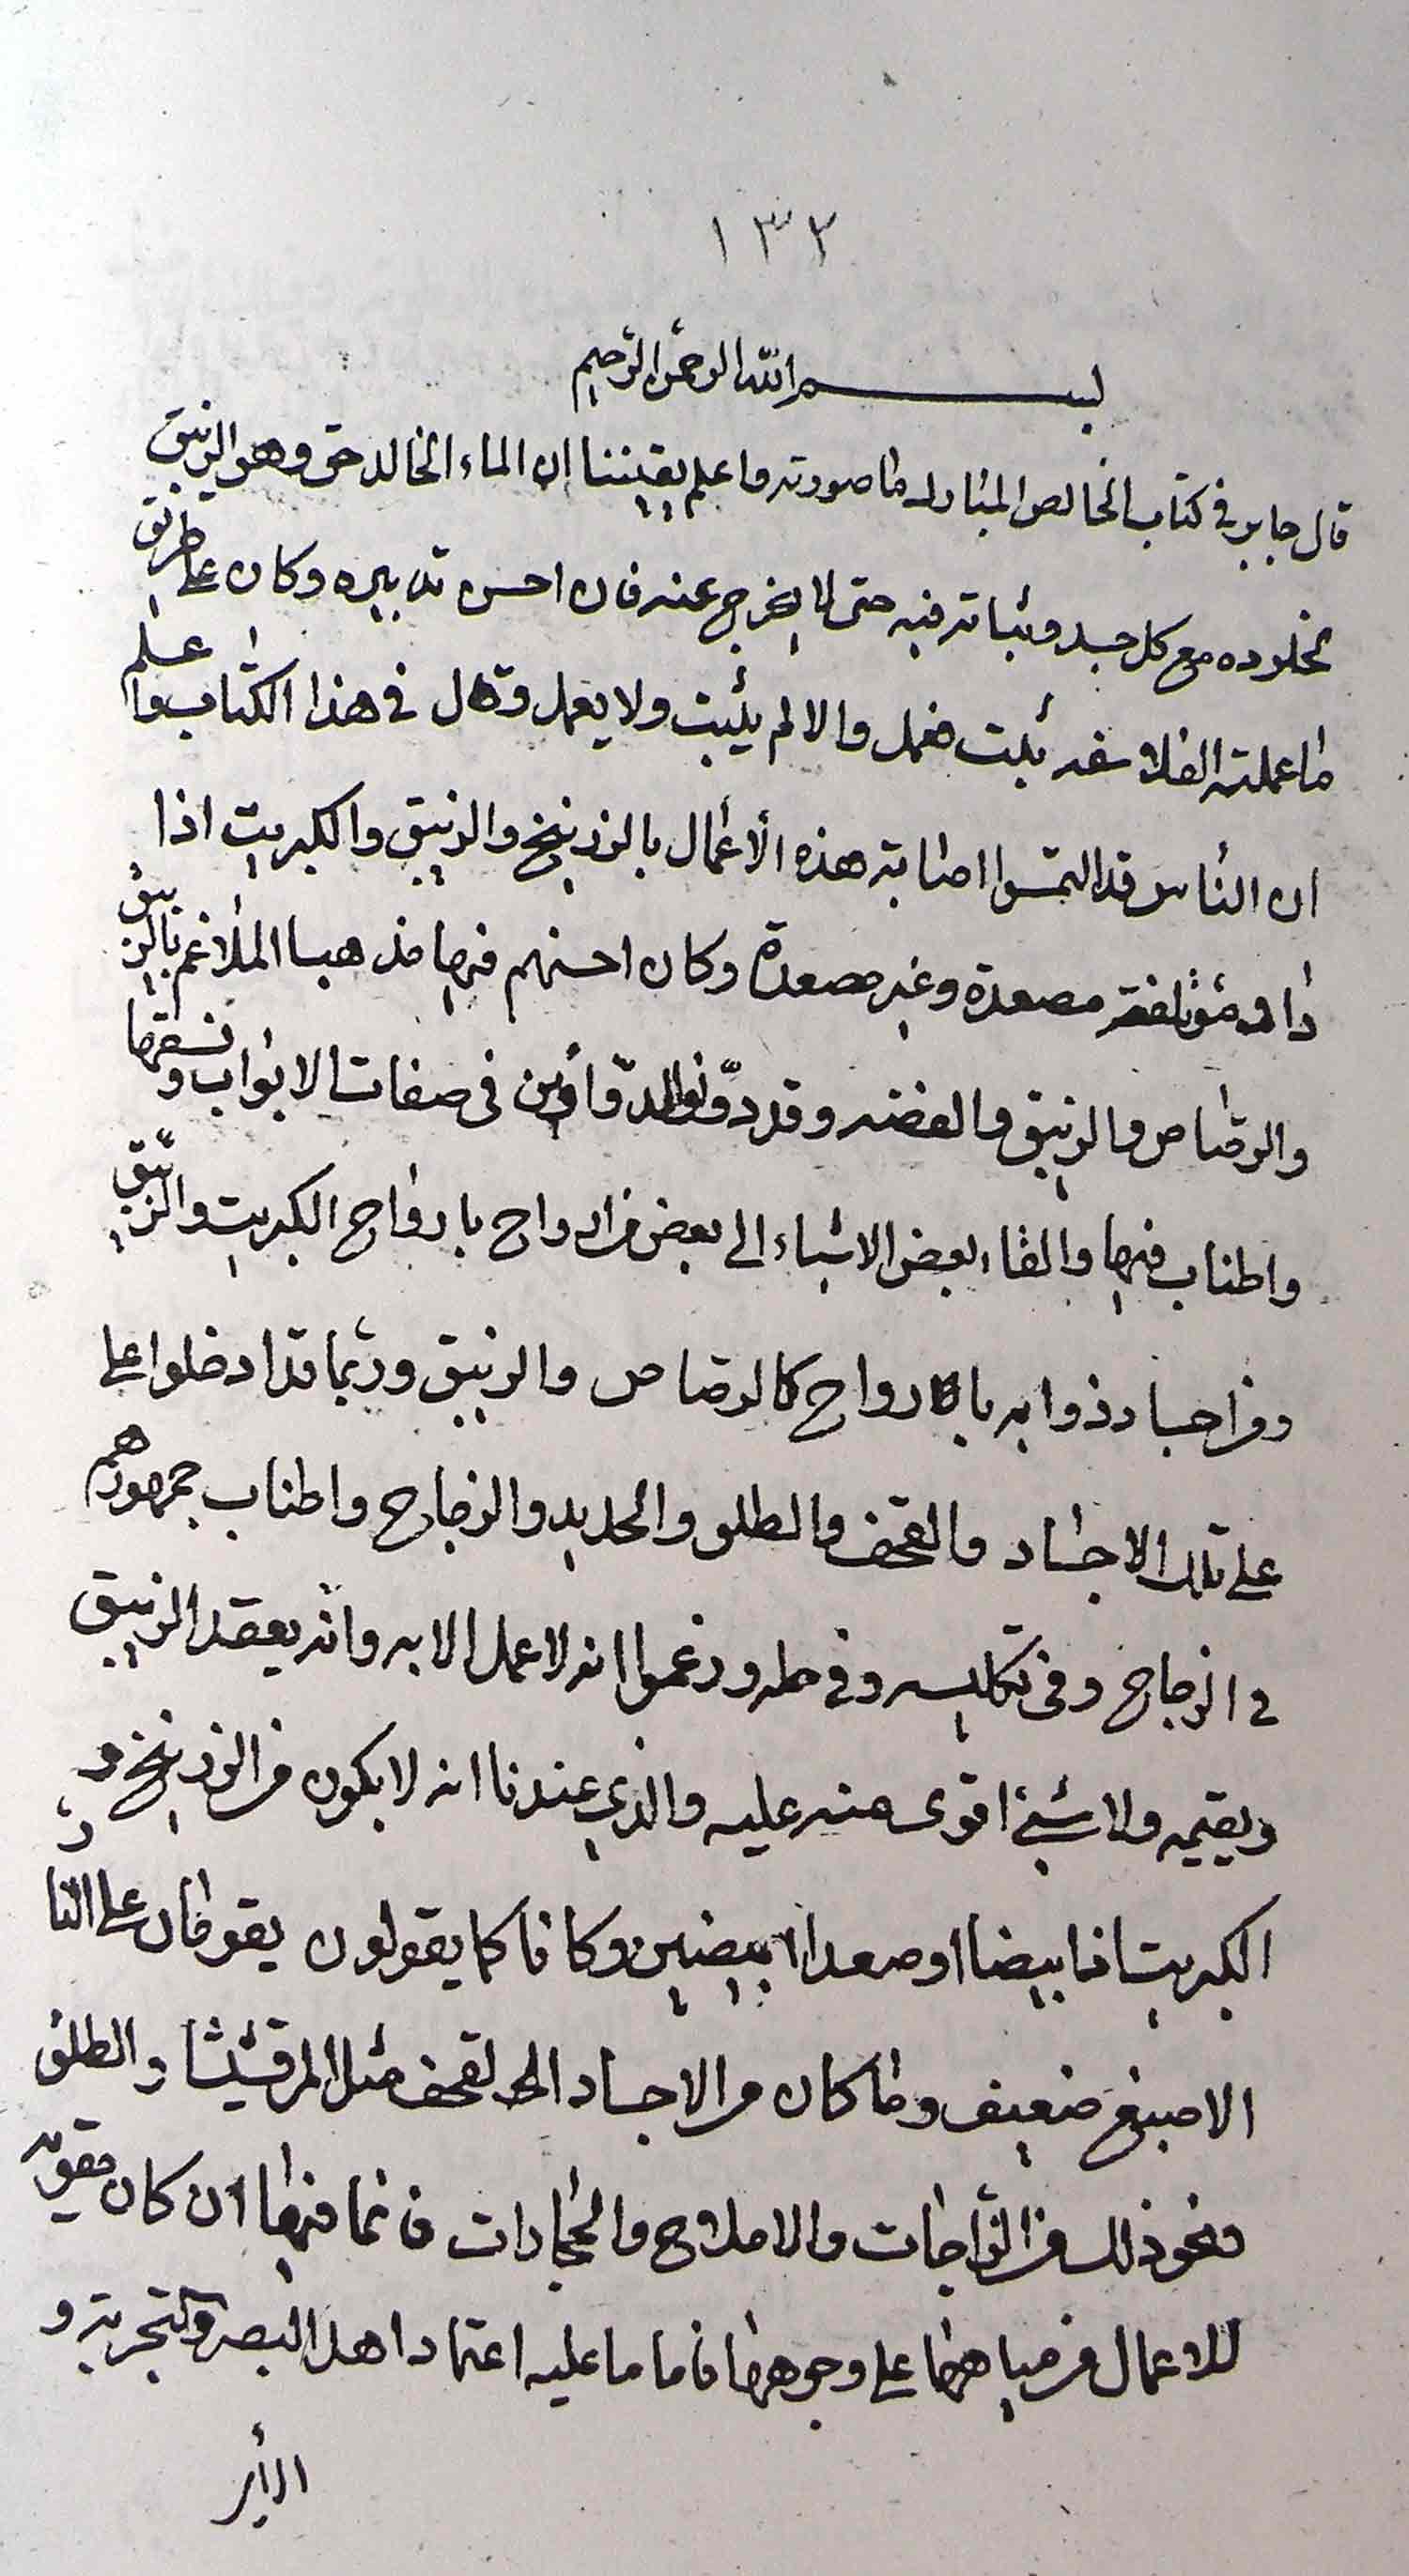 ١٣٢
بسم الله الرحمن الرحيم
قال جابر في كتاب الخالص المبارك ما صورته واعلم يقيننا ان الماء الخالد حق وهو الزيبق
لخلوده مع كل جسد وثباته فيه حتى لا يخرج عنه فان احسن تدبيره وكان على طريق
ما عملته الفلاسفه ثبت فعمل والا لم يثبت ولا يعمل وقال في هذا الكتاب واعلم
ان الناس قد التمسوا اصابة هذه الأعمال بالزرنيخ والزيبق والكبريت اذا
مؤتلفة مصعدة وغير مصعدة وكان احسنهم فيها مذهبا الملاغم بالزيبق
والرصاص والزيبق والفضه وقد دوّنوا الدوّاوين في صفات الابواب ونسقها
واطناب فيها والقاء بعض الاشياء الى بعض من ارواح بارواح الكبريت والزيبق
ومن اجساد ذوابه بالارواح كالرصاص والزيبق وربما قد ادخلوا على
على تلك الاجساد والقحف والطلق والحديد والزجاج واطناب جمهورهم
في الزجاج وفى تكليسه وفي حله وزعموا انه لا عمل الا به وانه يعقد الزيبق
ويقيمه ولا شيئ اقوى منه عليه والذي عندنا انه لا يكون من الزرنيخ و
الكبريت انما بيضا او صعدا ابيضين وكانا كما يقولون يقومان على النار
الا صبغ ضعيف وما كان من الاجساد القحف مثل المرقشيثا والطلق
ونحو ذلك من الزاجات والاملاح والحجارات فانما فيها ان كان مقويه
للاعمال من مياهها على وجوهها فاما ما عليه اعتماد اهل البصر والتجربة و